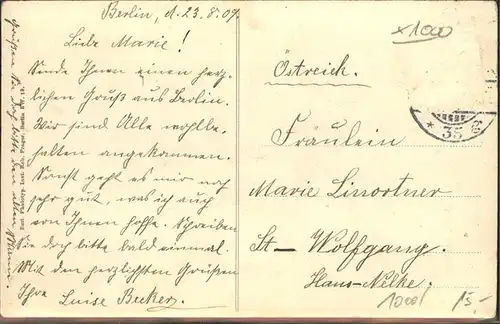 Berlin, d. 23.8.09.
Liebe Marie!
Sende Ihnen einen herz-
lichen Gruß aus Berlin.
Wir sind Alle wohlbe-
halten angekommen.
Sonst geht es mir noch
sehr gut, was ich auch
von Ihnen hoffe. Schreiben
Sie doch bitte bald einmal.
Mit den herzlichsten Grüßen
Ihre Luise Becker.
Grüßen Sie doch bitte den alten
x 1000
Östreich.
Fräulein
Marie Linortner
St- Wolfgang.
Haus-Nelke.
1000
15,-